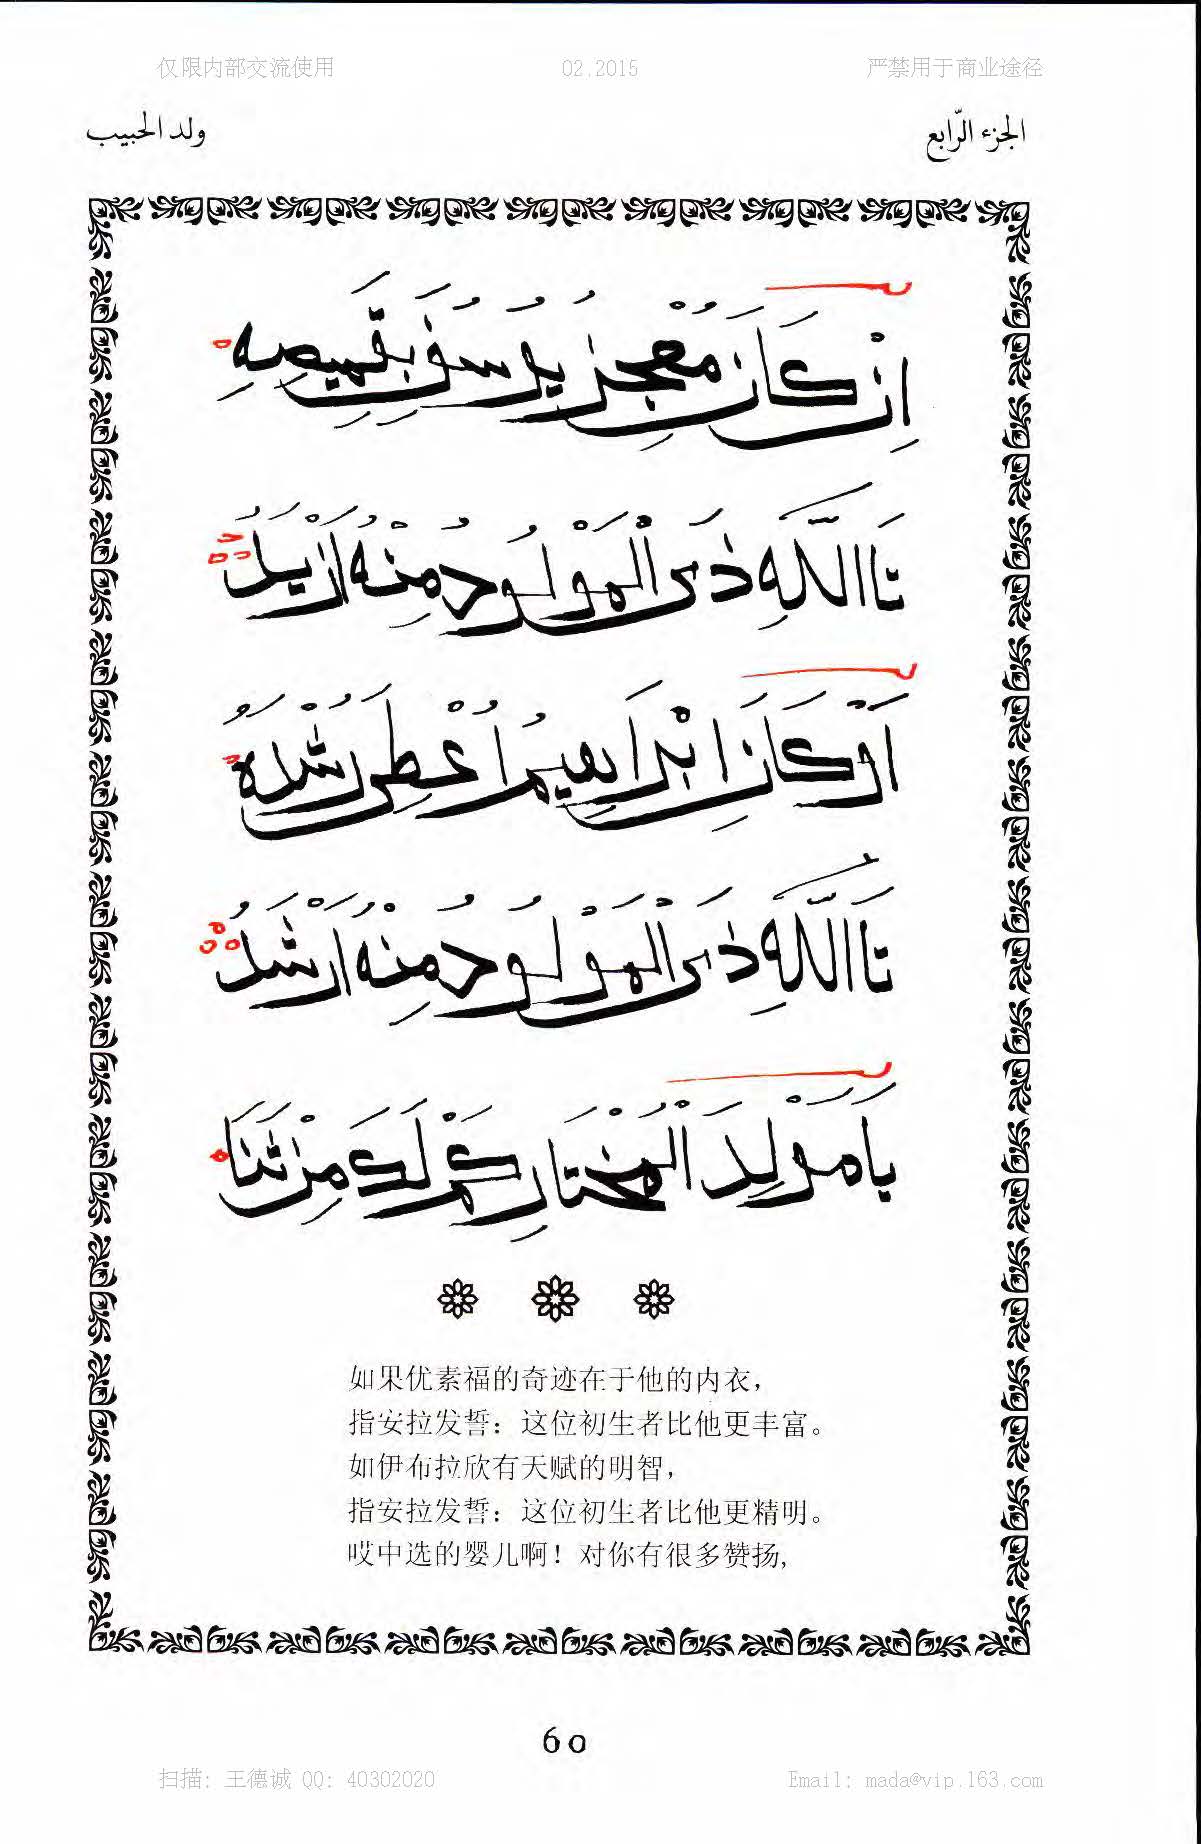 仅限内部交流使用 02.2015 严禁用于商业途径
الجزء الرّابع ولد الحبيب
اِنْ كَانَ مُعْجِزُ يُوسُفَ بِقَمِيصِهِ
تَاللَّهِ ذَى الْمَوْلُودُ مِنْهُ اَزْيَدُ
اَوْ كَانَ اِبْرَاهِيمُ اُعْطِىَ رُشْدَهُ
تَاللَّهِ ذَى الْمَوْلُودُ مِنْهُ اَرْشَدُ
يَا مَوْلِدَ الْمُخْتَارِ كَمْ لَكَ مِنْ ثَنَا
如果优素福的奇迹在于他的内衣，
指安拉发誓：这位初生者比他更丰富。
如伊布拉欣有天赋的明智，
指安拉发誓：这位初生者比他更精明。
哎中选的婴儿啊！对你有很多赞扬，
60
扫描: 王德诚 QQ: 40302020 Email: mada@vip.163.com